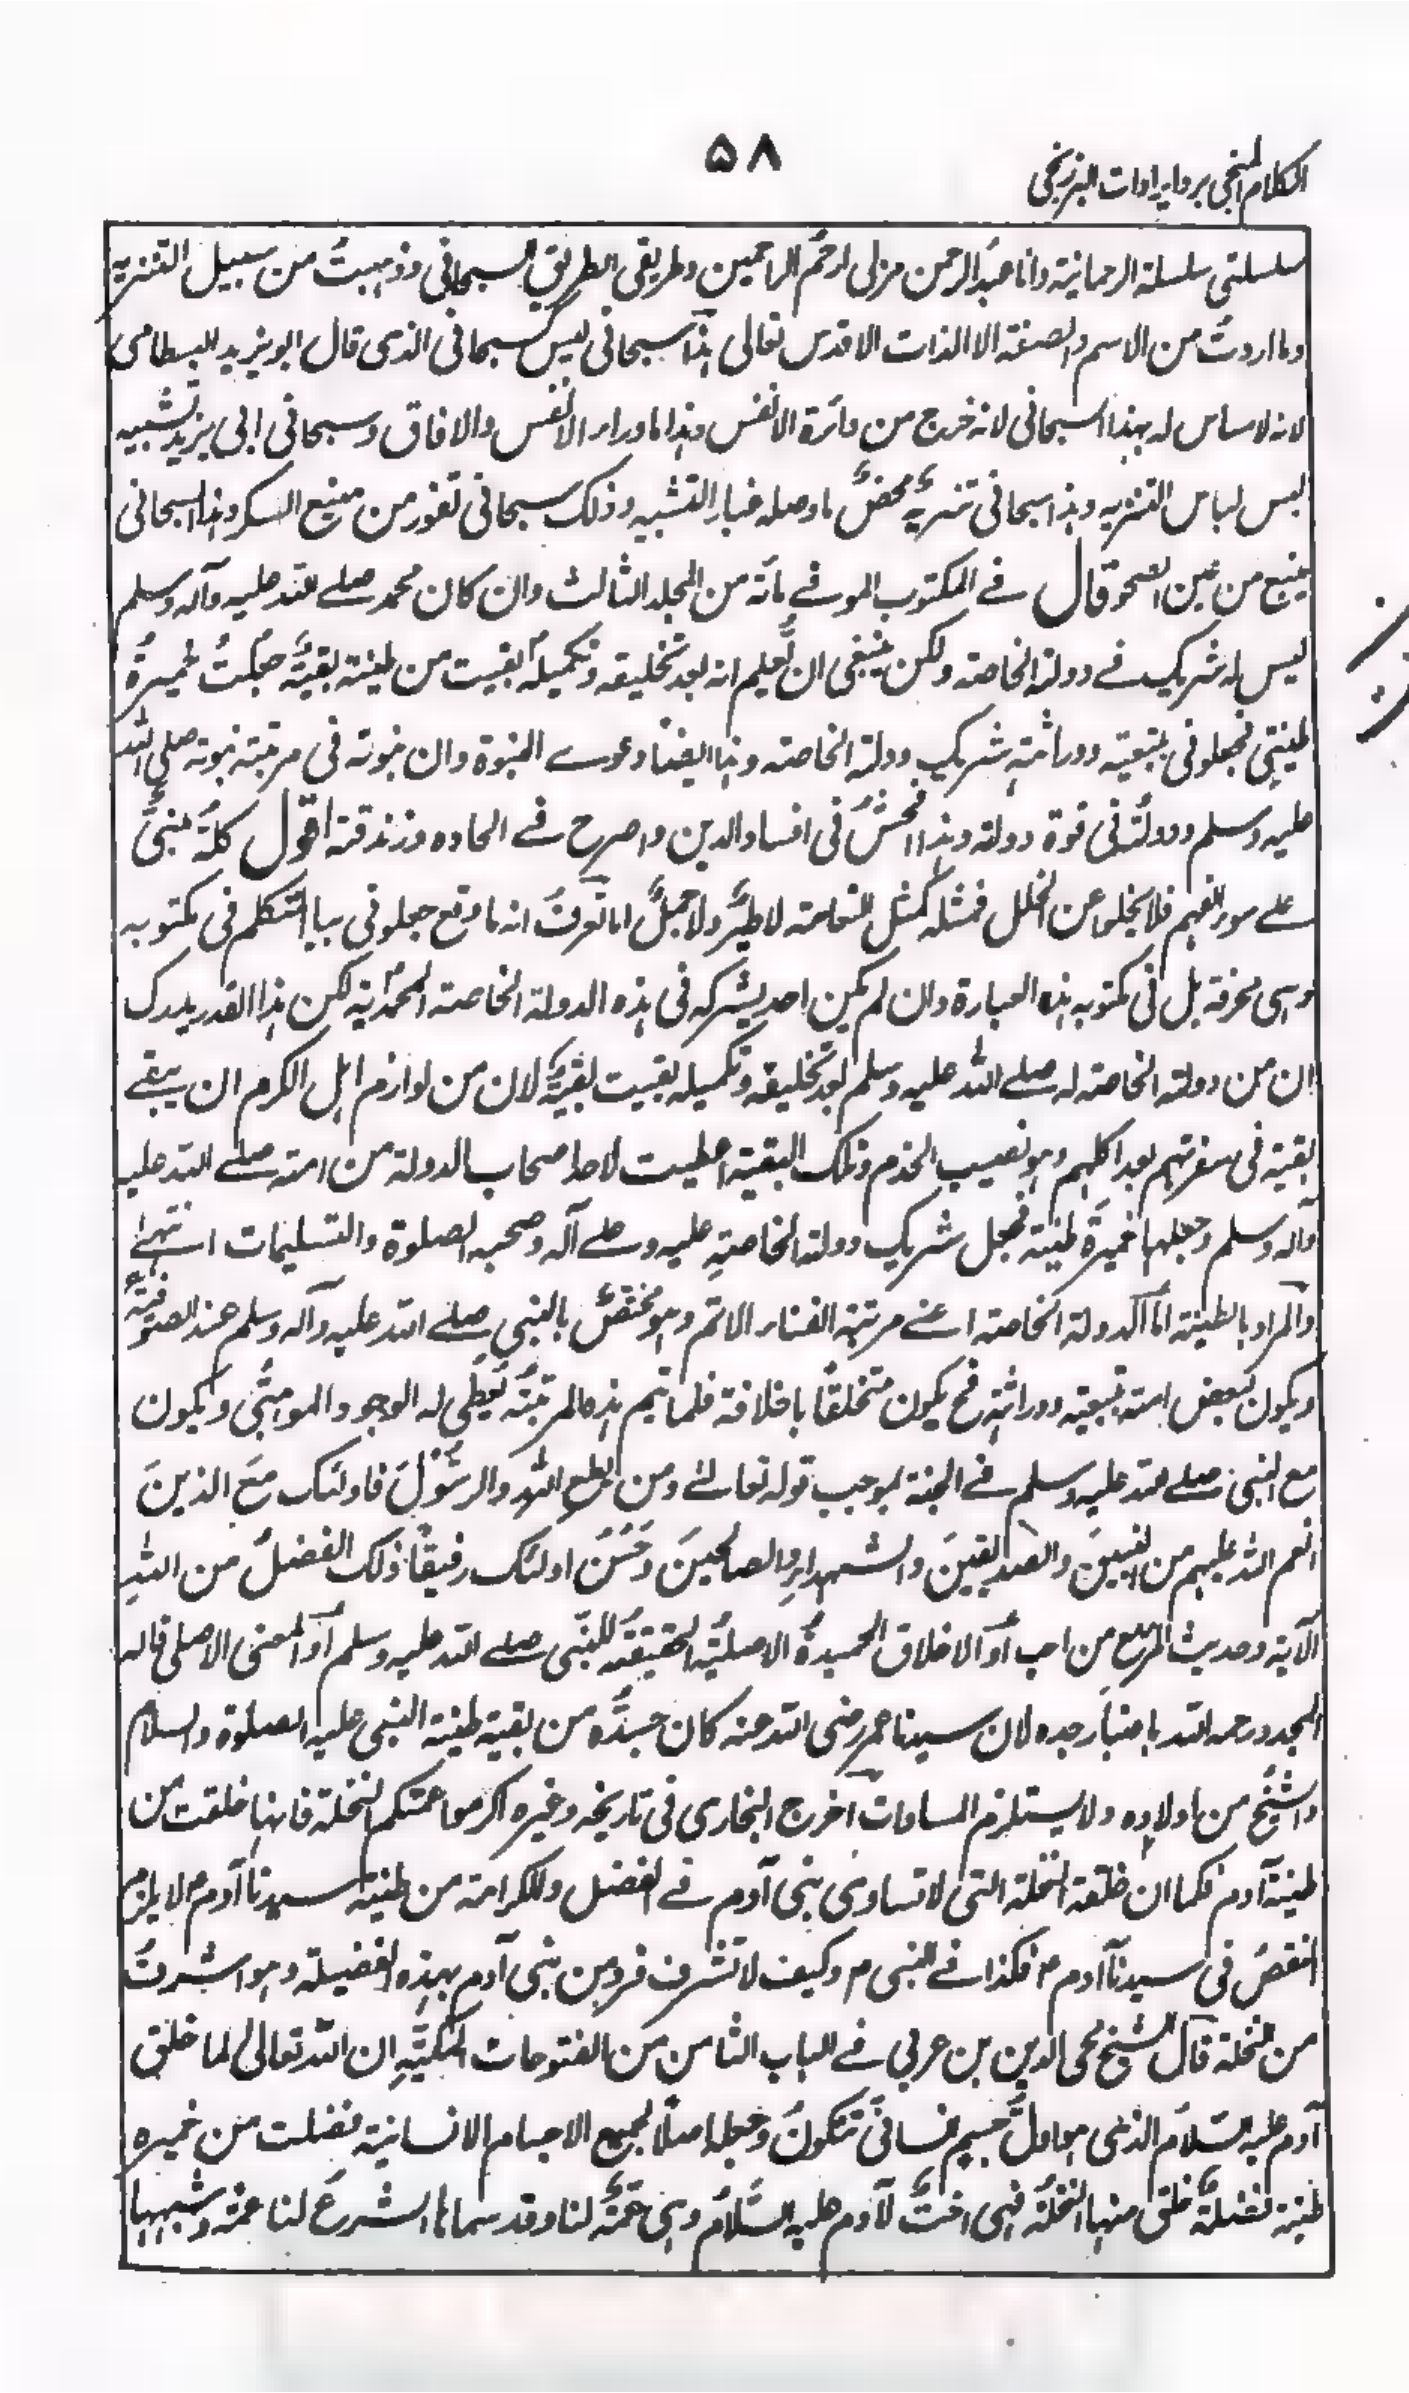 ۵۸
الكلام المنجی برد ايرادات البرزنجی
سلسلتی سلسلة الرحمانية وانا عبد الرحمن مربی ارحم الراحمين وطريقی الطريق السبحانی وذهبت من سبيل التنزيه
وما اردت من الاسم والصفة الا الذات الاقدس تعالی هذا سبحانی ليس كسبحانی الذی قال ابو يزيد البسطامی
لانه لا مساس له بهذا السبحانی لانه خرج من دائرة الانفس وهذا ماوراء الانفس والافاق وسبحانی ابی يزيد تشبيه
لبس لباس التنزيه وهذا سبحانی تنزيهٌ محضٌ ما وصله غبار التشبيه وذلك سبحانی تفور من منبع السكر وهذا السبحانی
ينبع من عين الصحو قال فے المكتوب الموفے مائة من المجلد الثالث وان كان محمد صلے الله عليه وآله وسلم
ليس له شريك فے دولته الخاصة ولكن ينبغی ان يُعلم انه بعد تخليقه وتكميله بقيت من طينته بقيةٌ جُعلت خميرةُ
طينتی فجعلونی بتبعيته ووراثته شريك دولته الخاصة وهذا ايضًا دعوے النبوة وان نبوته فی مرتبة نبوته صلی الله
عليه وسلم ودولته فی قوة دولته وهذا افحشُ فی افساد الدين واصرح فے الحاده وزندقته اقول كله مبنیٌّ
علے سوء الفهم فلا يخلو عن الخلل فمثله كمثل النعامة لا طيرٌ ولا جملٌ اما تعرف انه ما وقع جعلونی بياء المتكلم فی مكتوبه
وهی محرفة بل فی مكتوبه هذه العبارة وان لم يكن احد يشركه فی هذه الدولة الخاصة المحمدية لكن هذا القدر يدرك
ان من دولته الخاصة له صلے الله عليه وسلم بعد تخليقه وتكميله بقيت بقيةٌ لان من لوازم اهل الكرم ان يبقے
بقية فی سفرتهم بعد اكلهم وهو نصيب الخدم وتلك البقية اعطيت لاحد اصحاب الدولة من امته صلے الله عليه
وآله وسلم وجعلها خميرة طينته فجعل شريك دولته الخاصة عليه وعلے آله وصحبه الصلوة والتسليمات انتهٰے
والمراد بالطينة اما الدولة الخاصة اعنے مرتبة الفناء الاتم وهو مختصٌ بالنبی صلے الله عليه وآله وسلم عند الصوفية
ويكون لبعض امته بتبعيته ووراثته فح يكون متخلقًا باخلاقه فلما تتم هذه المرتبة يُعطی له الوجود الموهبی ويكون
مع النبی صلے الله عليه وسلم فے الجنة بموجب قوله تعالے ومن يطع الله والرسول فاولئك مع الذين
انعم الله عليهم من النبيين والصديقين والشهداء والصالحين وحسن اولئك رفيقًا ذلك الفضل من الله
الآية وحديث المرء مع من احب او الاخلاق الحميدة الاصلية الحقيقة للنبی صلے الله عليه وسلم او المعنی الاصلی قاله
المجدد رحمه الله باعتبار جده لان سيدنا عمر رضی الله عنه كان جسدُه من بقية طينة النبی عليه الصلوة والسلام
والشيخ من اولاده ولا يستلزم المساوات اخرج البخاری فی تاريخه وغيره اكرموا عمتكم النخلة فانها خلقت من
طينة آدم فكما ان خلقة النخلة التی لا تساوی بنی آدم فے الفضل والكرامة من طينة سيدنا آدم ؑ لا يلزم
النقص فی سيدنا آدم ؑ فكذا فے النبی ؐ وكيف لا تشرف فرد من بنی آدم بهذه الفضيلة وهو اشرف
من النخلة قال الشيخ محی الدين بن عربی فے الباب الثامن من الفتوحات المكية ان الله تعالی لما خلق
آدم عليه السلام الذی هو اول جسم انسانی تكون وجعله اصلًا لجميع الاجسام الانسانية فضلت من خميره
طينته فضلةٌ خلق منها النخلة فهی اختٌ لآدم عليه السلام وهی عمةٌ لنا وقد سماها الشرع لنا عمةً وشبهها